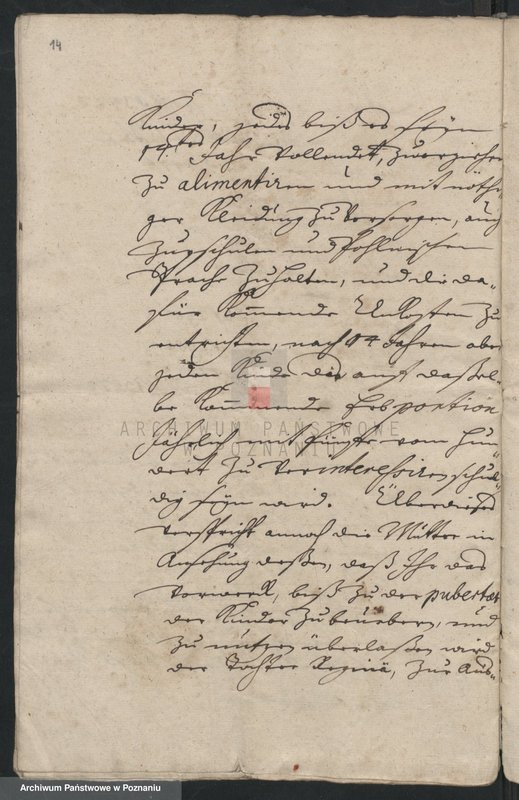 14
Kinder, jedes biß es seyn
14.tes Jahr vollendet, zu erziehen
zu alimentiren und mit nöthi-
ger Kleidung zu versorgen, auch
zur schulen und Pohlnischen
Sprache zu halten, und die da-
für kommende Unkosten zu
entrichten, nach 14 Jahren aber
jeden Kinde die auf dassel-
be kommende Erbportion
Jährlich mit fünffe vom hun-
dert zu verinteressiren schul-
dig seyn wird. Überdieses
verspricht annoch die Mutter in
Ansehung dessen, daß Ihr das
Vorwerk, biß zu der pubertæt
der Kinder zu beneben, und
zu nutzen überlaßen wird
der Tochter Reginä, zur Aus-
ARCHIWUM PAŃSTWOWE
W POZNANIU
Archiwum Państwowe w Poznaniu